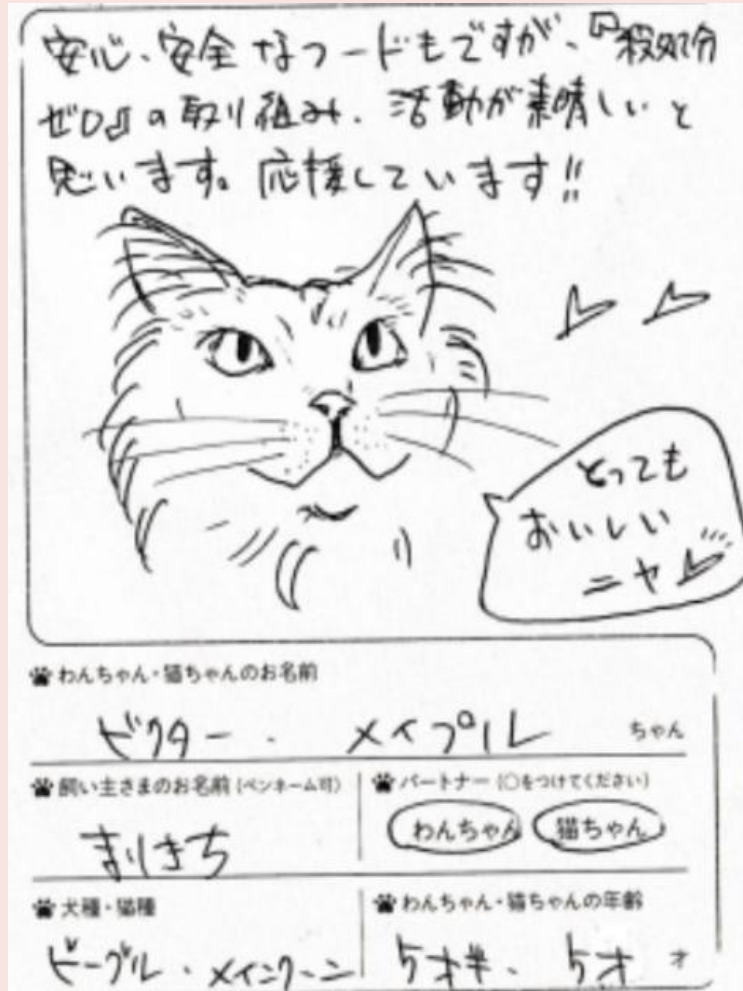 安心、安全なフードもですが、『殺処分
ゼロ』の取り組み、活動が素晴しいと
思います。応援しています!!
とっても
おいしい
ニャ
わんちゃん・猫ちゃんのお名前
ビクター . メイプル ちゃん
飼い主さまのお名前(ペンネーム可)
まりきち
パートナー(○をつけてください)
わんちゃん 猫ちゃん
犬種・猫種
ビーグル・メインクーン
わんちゃん・猫ちゃんの年齢
5才半、5才 才